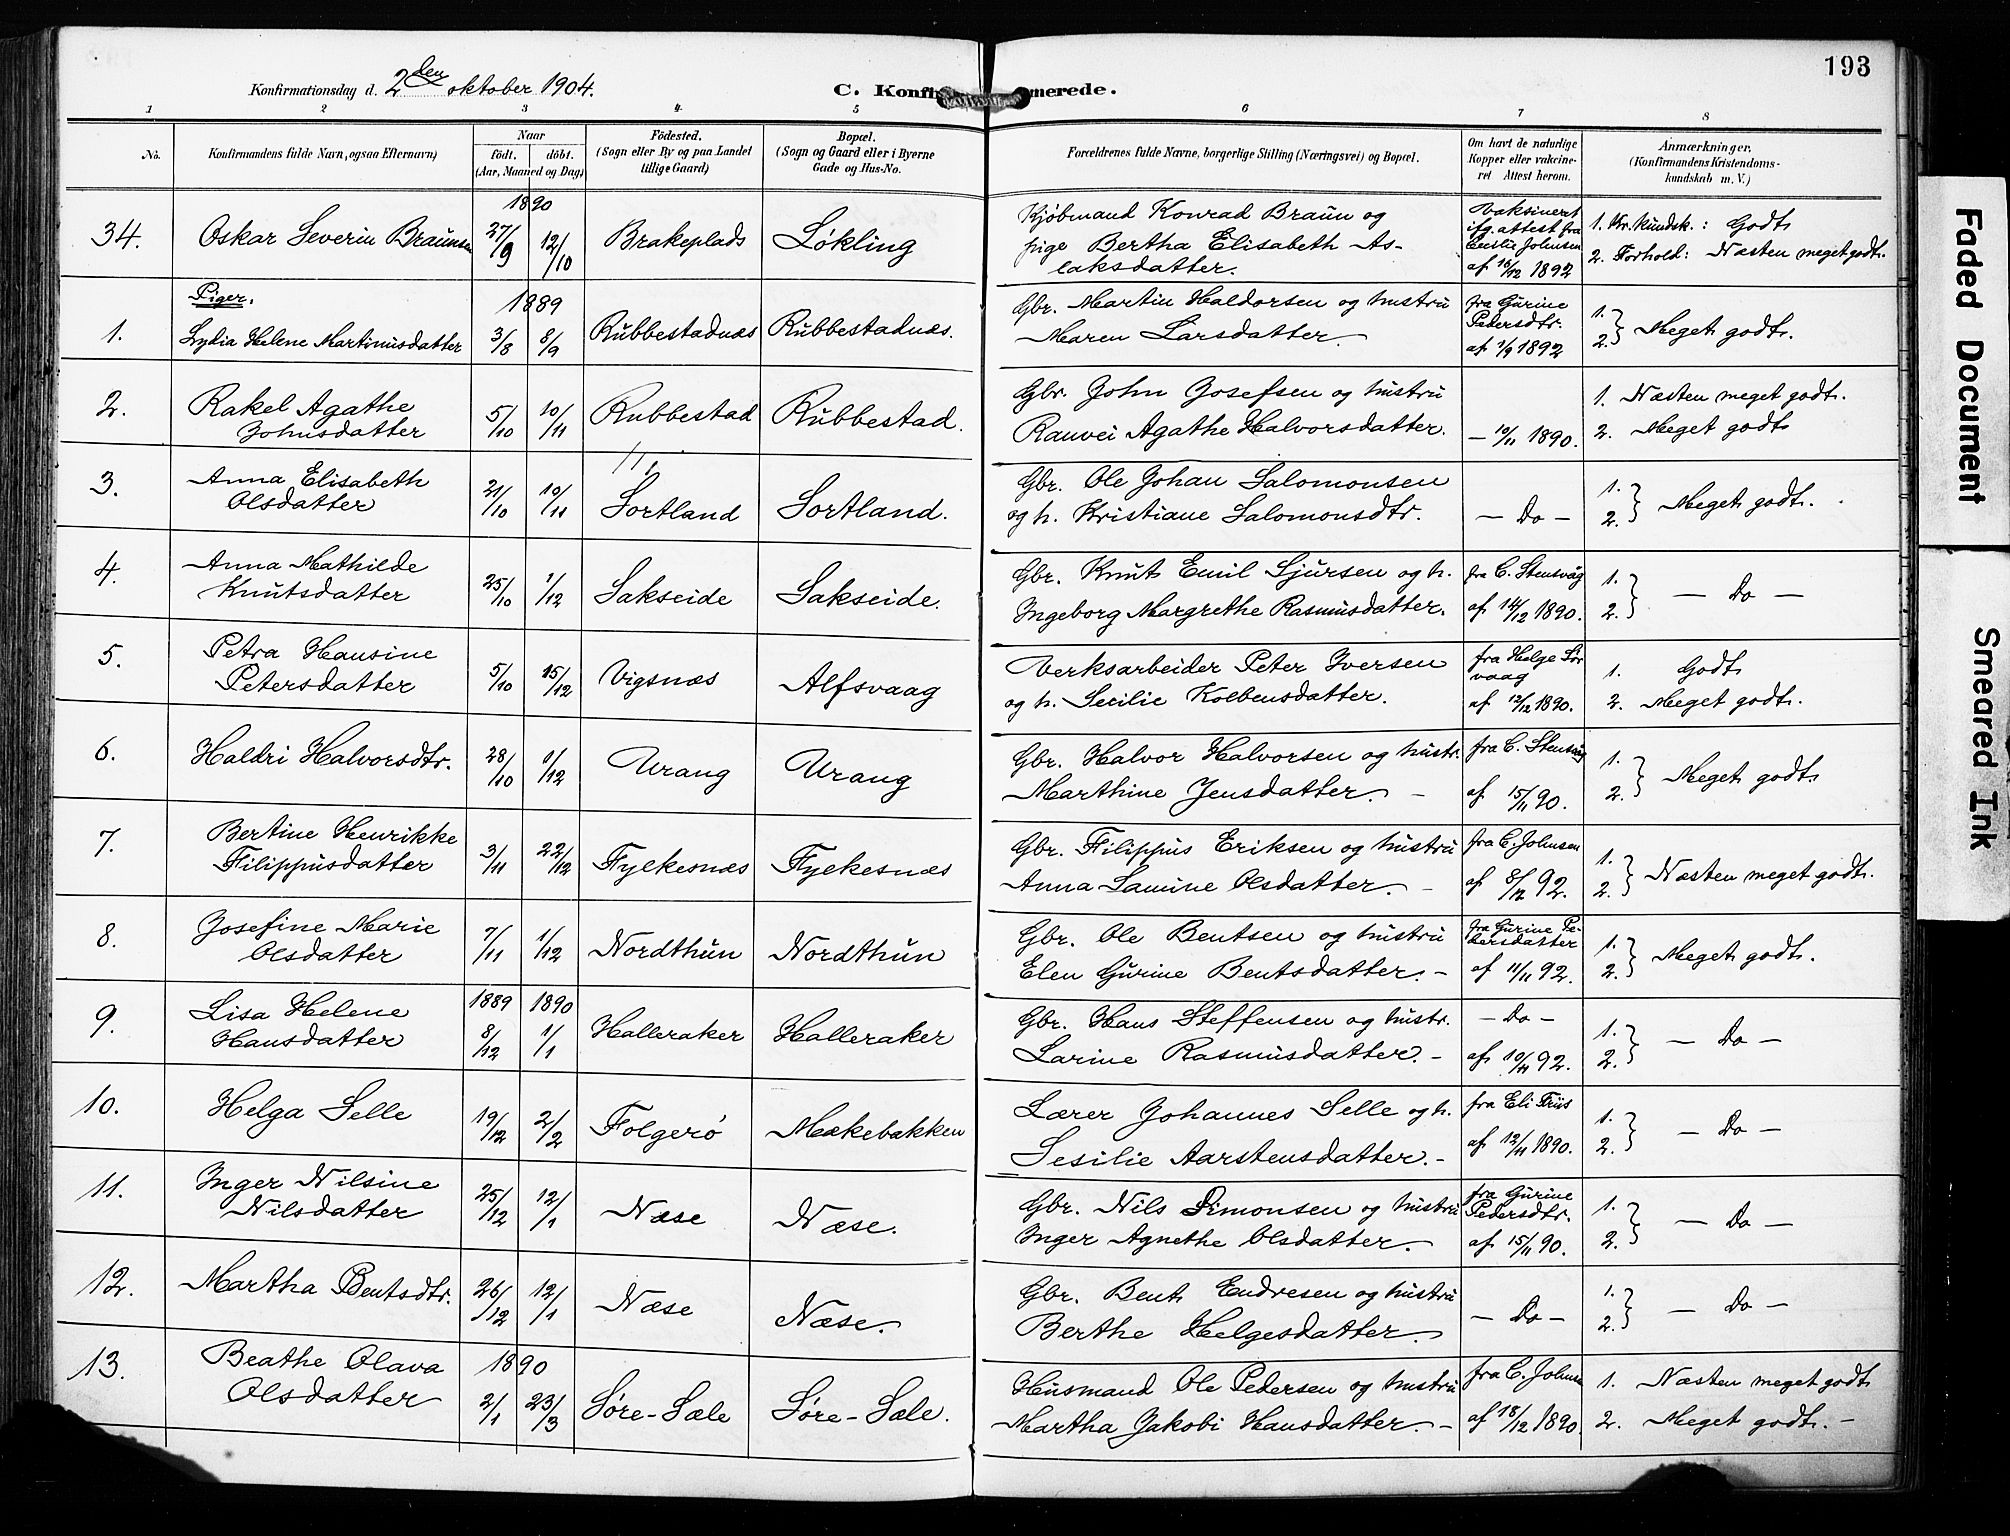 193
Konfirmationsdag d. 2den oktober 1904.
C. Konfirmerede.
1 2 3 4 5 6 7 8
No.
Konfirmandens fulde Navn, ogsaa Efternavn)
Naar
födt. döbt.
(Aar, Maaned og Dag)
Födested.
(Sogn eller By og paa Landet
tillige Gaard)
Bopæl.
(Sogn og Gaard eller i Byerne
Gade og Hus-No.
Forældrenes fulde Navne, borgerlige Stilling (Næringsvei) og Bopæl.
Om havt de naturlige
Kopper eller vakcine-
ret Attest herom.
Anmærkninger.
(Konfirmandens Kristendoms-
kundskab m. V.)
1890
34. Oskar Severin Braunsen 27/9 12/10 Brakeplads Løkling
Kjøbmand Konrad Braun og
pige Bertha Elisabeth As-
laksdatter.
Vaksinert
ifg. attest fra
Cecilie Johnsen
af 16/12 1892
1. Kr. kundsk.: Godt
2. Forhold: Næsten meget godt.
Piger.
1889
1. Lydia Helene Martinusdatter 3/8 8/9 Rubbestadnæs Rubbestadnæs.
Gbr. Martin Haldorsen og hustru
Maren Larsdatter
fra Gurine
Pedersdtr.
af 1/9 1892
1. 2. } Meget godt.
2. Rakel Agathe
Johnsdatter 5/10 10/11 Rubbestad Rubbestad.
Gbr. John Josefsen og hustru
Ranvei Agathe Halvorsdatter.
— 10/11 1890.
1. Næsten meget godt.
2. Meget godt
3. Anna Elisabeth
Olsdatter 21/10 10/11 Sortland Sortland.
Gbr. Ole Johan Salomonsen
og h. Kristiane Salomonsdtr.
— Do —
1. 2. } Meget godt.
4. Anna Mathilde
Knutsdatter 25/10 1/12 Sakseide Sakseide.
Gbr. Knut Emil Sjursen og h.
Ingeborg Margrethe Rasmusdatter.
fra C. Stensvåg
af 14/12 1890.
1. 2. } — Do —
5. Petra Hansine
Petersdatter 5/10 15/12 Vigsnæs Alfsvaag
Verksarbeider Peter Iversen
og h. Secilie Kolbensdatter.
fra Helge Sør
vaag
af 12/12 1890.
1. Godt
2. Meget godt.
6. Haldri Halvorsdtr. 28/10 1/12 Urang Urang
Gbr. Halvor Halvorsen og hustr.
Marthine Jensdatter. —
fra C. Stensvåg
af 15/11 90.
1. 2. } Meget godt
7. Bertine Henrikke
Filippusdatter 3/11 22/12 Fylkesnæs Fylkesnæs
Gbr. Filippus Eriksen og hustru
Anna Samine Olsdatter. —
fra C. Johnsen
af 8/12 92.
1. 2. } Næsten meget godt.
8. Josefine Marie
Olsdatter 7/11 1/12 Nordthun Nordthun
Gbr. Ole Bentsen og hustru
Elen Gurine Bentsdatter. —
fra Gurine Pe-
tersdatter
af 11/11 92.
1. 2. } Meget godt.
1889 1890
9. Lisa Helene
Hansdatter 8/12 1/1 Halleraker Halleraker
Gbr. Hans Steffensen og hustr.
Larine Rasmusdatter. —
— Do —
af 10/11 92.
1. 2. } — Do —
10. Helga Selle 19/12 2/2 Folgerö Mækebakken
Lærer Johannes Selle og h.
Sesilie Aarstensdatter. —
fra Eli Friis
af 12/11 1890.
1. 2. } — Do —
11. Inger Nilsine
Nilsdatter 25/12 12/1 Næse Næse.
Gbr. Nils Simonsen og hustru
Inger Agnethe Olsdatter.
fra Gurine
Pedersdtr.
af 15/11 90.
1. 2. } — Do —
12. Martha Bentsdtr. 26/12 12/1 Næse Næse.
Gbr. Bent Endresen og hustru
Berthe Helgesdatter.
— Do —
1. 2. } — Do —
1890
13. Beathe Olava
Olsdatter 2/1 23/3 Søre-Sæle Søre-Sæle.
Husmand Ole Pedersen og hustru
Martha Jakobi Hansdatter. —
fra C. Johnsen
af 18/12 1890.
1. Næsten meget godt
2. Meget godt. —
Faded Document
Smeared Ink